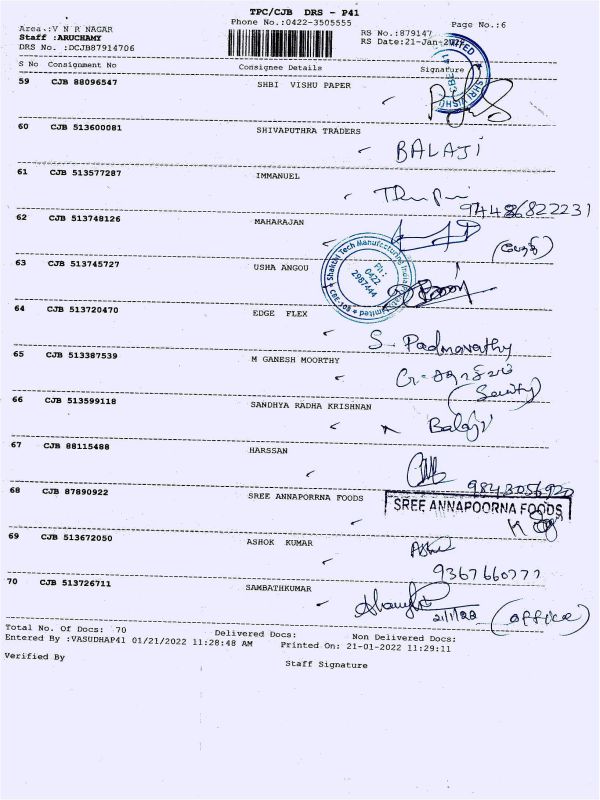 TPC/CJB DRS - P41
Phone No.:0422-3505555
Page No.:6
Area.:V N R NAGAR
Staff :ARUCHAMY
DRS No. :DCJB87914706
RS No.:879147
RS Date:21-Jan-
S No Consignment No Consignee Details Signature
59 CJB 88096547 SHBI VISHU PAPER
60 CJB 513600081 SHIVAPUTHRA TRADERS
BALAJI
61 CJB 513577287 IMMANUEL
62 CJB 513748126 MAHARAJAN
63 CJB 513745727 USHA ANGOU
Shakthi Tech Manufacturing India
Ph: 0422 2987444
64 CJB 513720470 EDGE FLEX
S. Padmavathy
65 CJB 513387539 M GANESH MOORTHY
66 CJB 513599118 SANDHYA RADHA KRISHNAN
Balaji
67 CJB 88115488 HARSSAN
9843056920
68 CJB 87890922 SREE ANNAPORRNA FOODS
SREE ANNAPOORNA FOODS
69 CJB 513672050 ASHOK KUMAR
70 CJB 513726711 SAMBATHKUMAR
(office)
Total No. Of Docs: 70 Delivered Docs: Non Delivered Docs:
Entered By :VASUDHAP41 01/21/2022 11:28:48 AM Printed On: 21-01-2022 11:29:11
Verified By Staff Signature